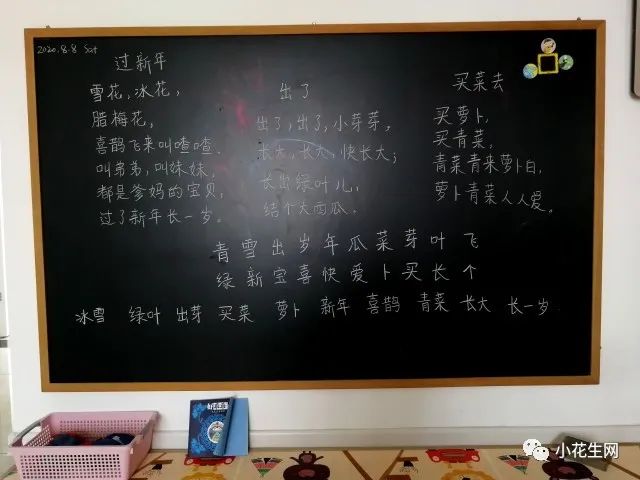 2020.8.8 Sat
过新年
雪花,冰花,
腊梅花,
喜鹊飞来叫喳喳.
叫弟弟,叫妹妹,
都是爹妈的宝贝,
过了新年长一岁。
出了
出了,出了,小芽芽,
长大,长大,快长大;
长出绿叶儿,
结个大西瓜。
买菜去
买萝卜,
买青菜,
青菜青来萝卜白,
萝卜青菜人人爱。
青雪出岁年瓜菜芽叶飞
绿新宝喜快爱卜买长个
冰雪 绿叶 出芽 买菜 萝卜 新年 喜鹊 青菜 长大 长一岁
小花生网